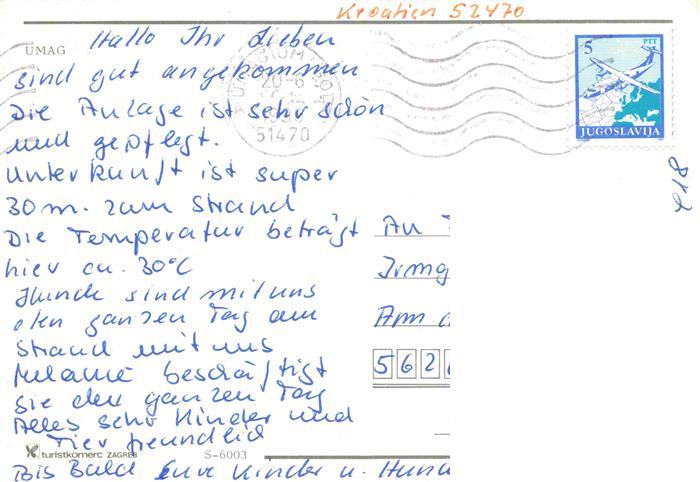 Kroatien 52470
UMAG
Hallo Ihr Lieben
sind gut angekommen
Die Anlage ist sehr schön
und gepflegt.
Unterkunft ist super
30 m. zum Strand
Die Temperatur beträgt
hier ca. 30°C
Hunde sind mit uns
den ganzen Tag am
Strand mit uns
Melanie beschäftigt
sie den ganzen Tag
Alles sehr Kinder und
Tier freundlich
Bis Bald Eure Kinder u. Hund
turistkomerc ZAGREB
S-6003
20-6
51470
5
PTT
JUGOSLAVIJA
An
Irmg
Am
562